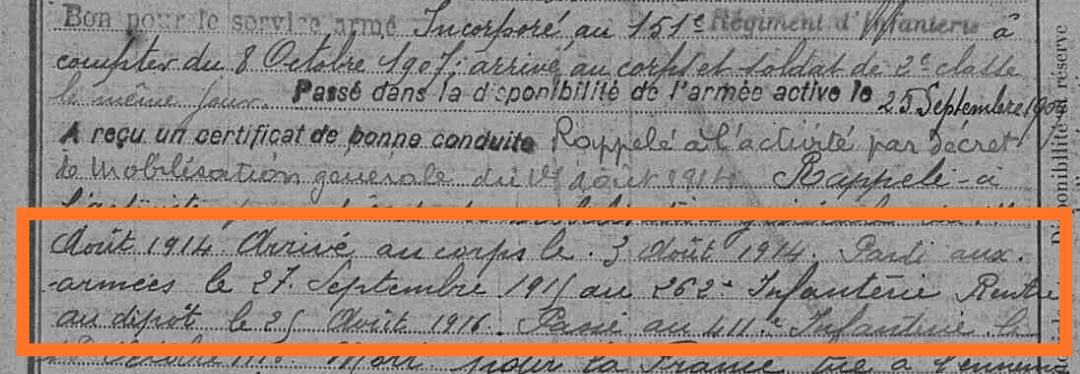 Bon pour le service armé Incorporé au 151e Régiment d'Infanterie à
compter du 8 Octobre 1907; arrivé au corps et soldat de 2e classe
le même jour. Passé dans la disponibilité de l'armée active le 25 Septembre 1909
A reçu un certificat de bonne conduite Rappelé à l'activité par décret
de mobilisation générale du 1er août 1914 Rappelé à
Août 1914 Arrivé au corps le 3 Août 1914. Parti aux
armées le 27 Septembre 1915 au 262e Infanterie Rentré
au dépôt le 25 Août 1916. Passé au 411e Infanterie le
Octobre Mort pour la France tué à l'ennemi
disponibilité et réserve